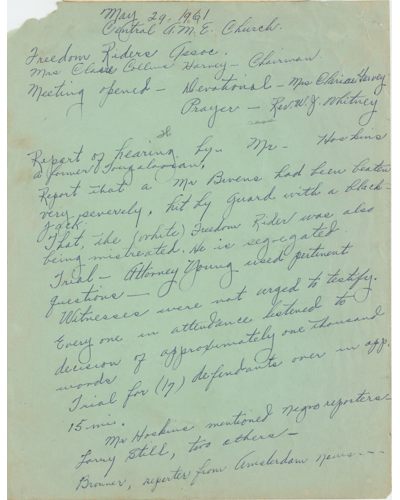 May 29, 1961
Central A.M.E. Church.
Freedom Riders Assoc.
Mrs Clarie Collins Harvey - Chairman
Meeting opened - Devotional - Mrs Clarice Harvey
Prayer - Rev. W. J. Whitney
Report of hearing by Mr - Hoskins
a former Tougalooian.
Report that a Mr Bivens had been beaten
very severely, hit by guard with a black-
jack.
That, the (white) Freedom Rider was also
being mistreated. He is segregated.
Trial - Attorney Young used pertinent
questions -
Witnesses were not urged to testify.
Every one in attendance listened to
decision of approximately one thousand
words
Trial for (17) defendants over in app.
15 mi.
Mr Hoskins mentioned negro reporters
Larry Still, two others -
Bronner, reporter from Amsterdam news - - -